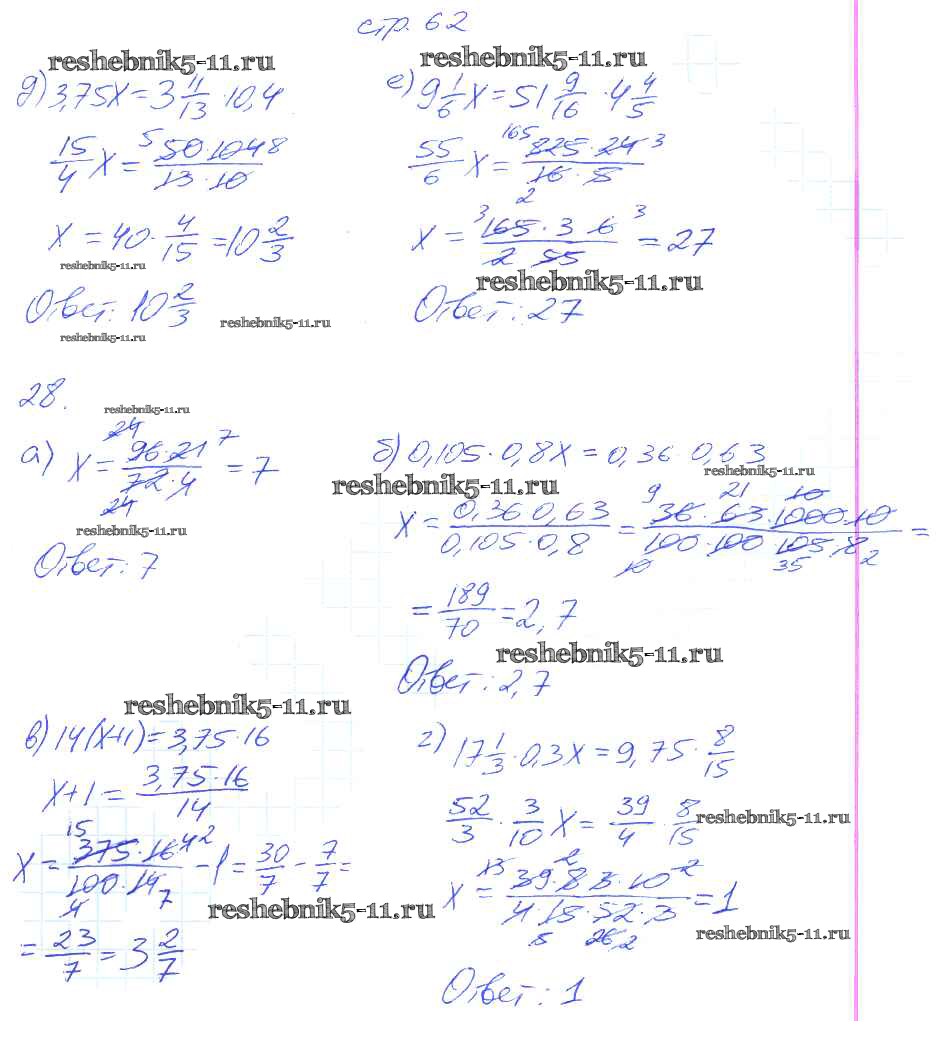 стр. 62
reshebnik5-11.ru
д) 3,75x = 3 11/13 · 10,4
15/4 x = 5 50 · 104 8 / 13 · 10
x = 40 · 4/15 = 10 2/3
reshebnik5-11.ru
Ответ: 10 2/3
reshebnik5-11.ru
reshebnik5-11.ru
reshebnik5-11.ru
е) 9 1/6 x = 51 9/16 · 4 4/5
55/6 x = 165 825 · 24 3 / 16 · 5 2
x = 3 165 · 3 6 3 / 2 55 = 27
reshebnik5-11.ru
Ответ: 27
28.
reshebnik5-11.ru
а) x = 24 96 · 21 7 / 72 · 4 24 = 7
reshebnik5-11.ru
Ответ: 7
б) 0,105 · 0,8x = 0,36 · 0,63
reshebnik5-11.ru
reshebnik5-11.ru
x = 0,36 0,63 / 0,105 · 0,8 = 9 36 · 21 63 · 1000 · 10 10 / 100 · 100 105 · 8 10 35 2 =
= 189/70 = 2,7
reshebnik5-11.ru
Ответ: 2,7
reshebnik5-11.ru
в) 14(x+1) = 3,75 · 16
x+1 = 3,75 · 16 / 14
x = 15 375 · 16 4 2 / 100 · 14 4 7 - 1 = 30/7 - 7/7 =
reshebnik5-11.ru
= 23/7 = 3 2/7
г) 17 1/3 · 0,3x = 9,75 · 8/15
52/3 · 3/10 x = 39/4 · 8/15
reshebnik5-11.ru
x = 13 39 · 8 2 3 · 10 2 / 4 · 15 · 52 · 3 5 26 2 = 1
reshebnik5-11.ru
Ответ: 1